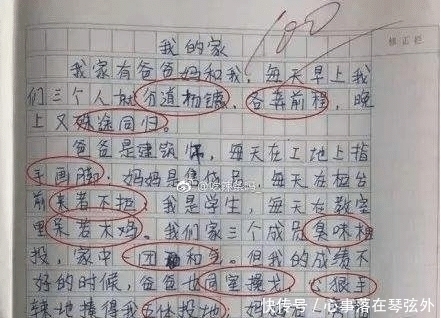 我的家
100
修正栏
我家有爸爸妈和我，每天早上我
们三个人就分道扬镳，各奔前程，晚
上又殊途同归。
爸爸是建筑师，每天在工地上指
手画脚；妈妈是售货员，每天在柜台
前来者不拒，我是学生，每天在教室
里呆若木鸡。我们家三个成员臭味相
投，家中一团和气。但我的成绩不
好的时候，爸爸也同室操戈，心狠手
辣地揍得我五体投地；妈
快传号/心事落在琴弦外